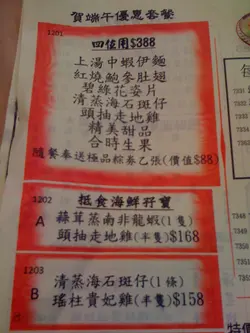 賀端午優惠套餐
1201
四位用$388
上湯中蝦伊麵
紅燒鮑參肚翅
碧綠花姿片
清蒸海石斑仔
頭抽走地雞
精美甜品
合時生果
隨餐奉送極品粽券乙張(價值$88)
1202
抵食海鮮孖寶
A
蒜茸蒸南非龍蝦(1隻)
頭抽走地雞(半隻)$168
1203
B
清蒸海石斑仔(1條)
瑤柱貴妃雞(半隻)$158